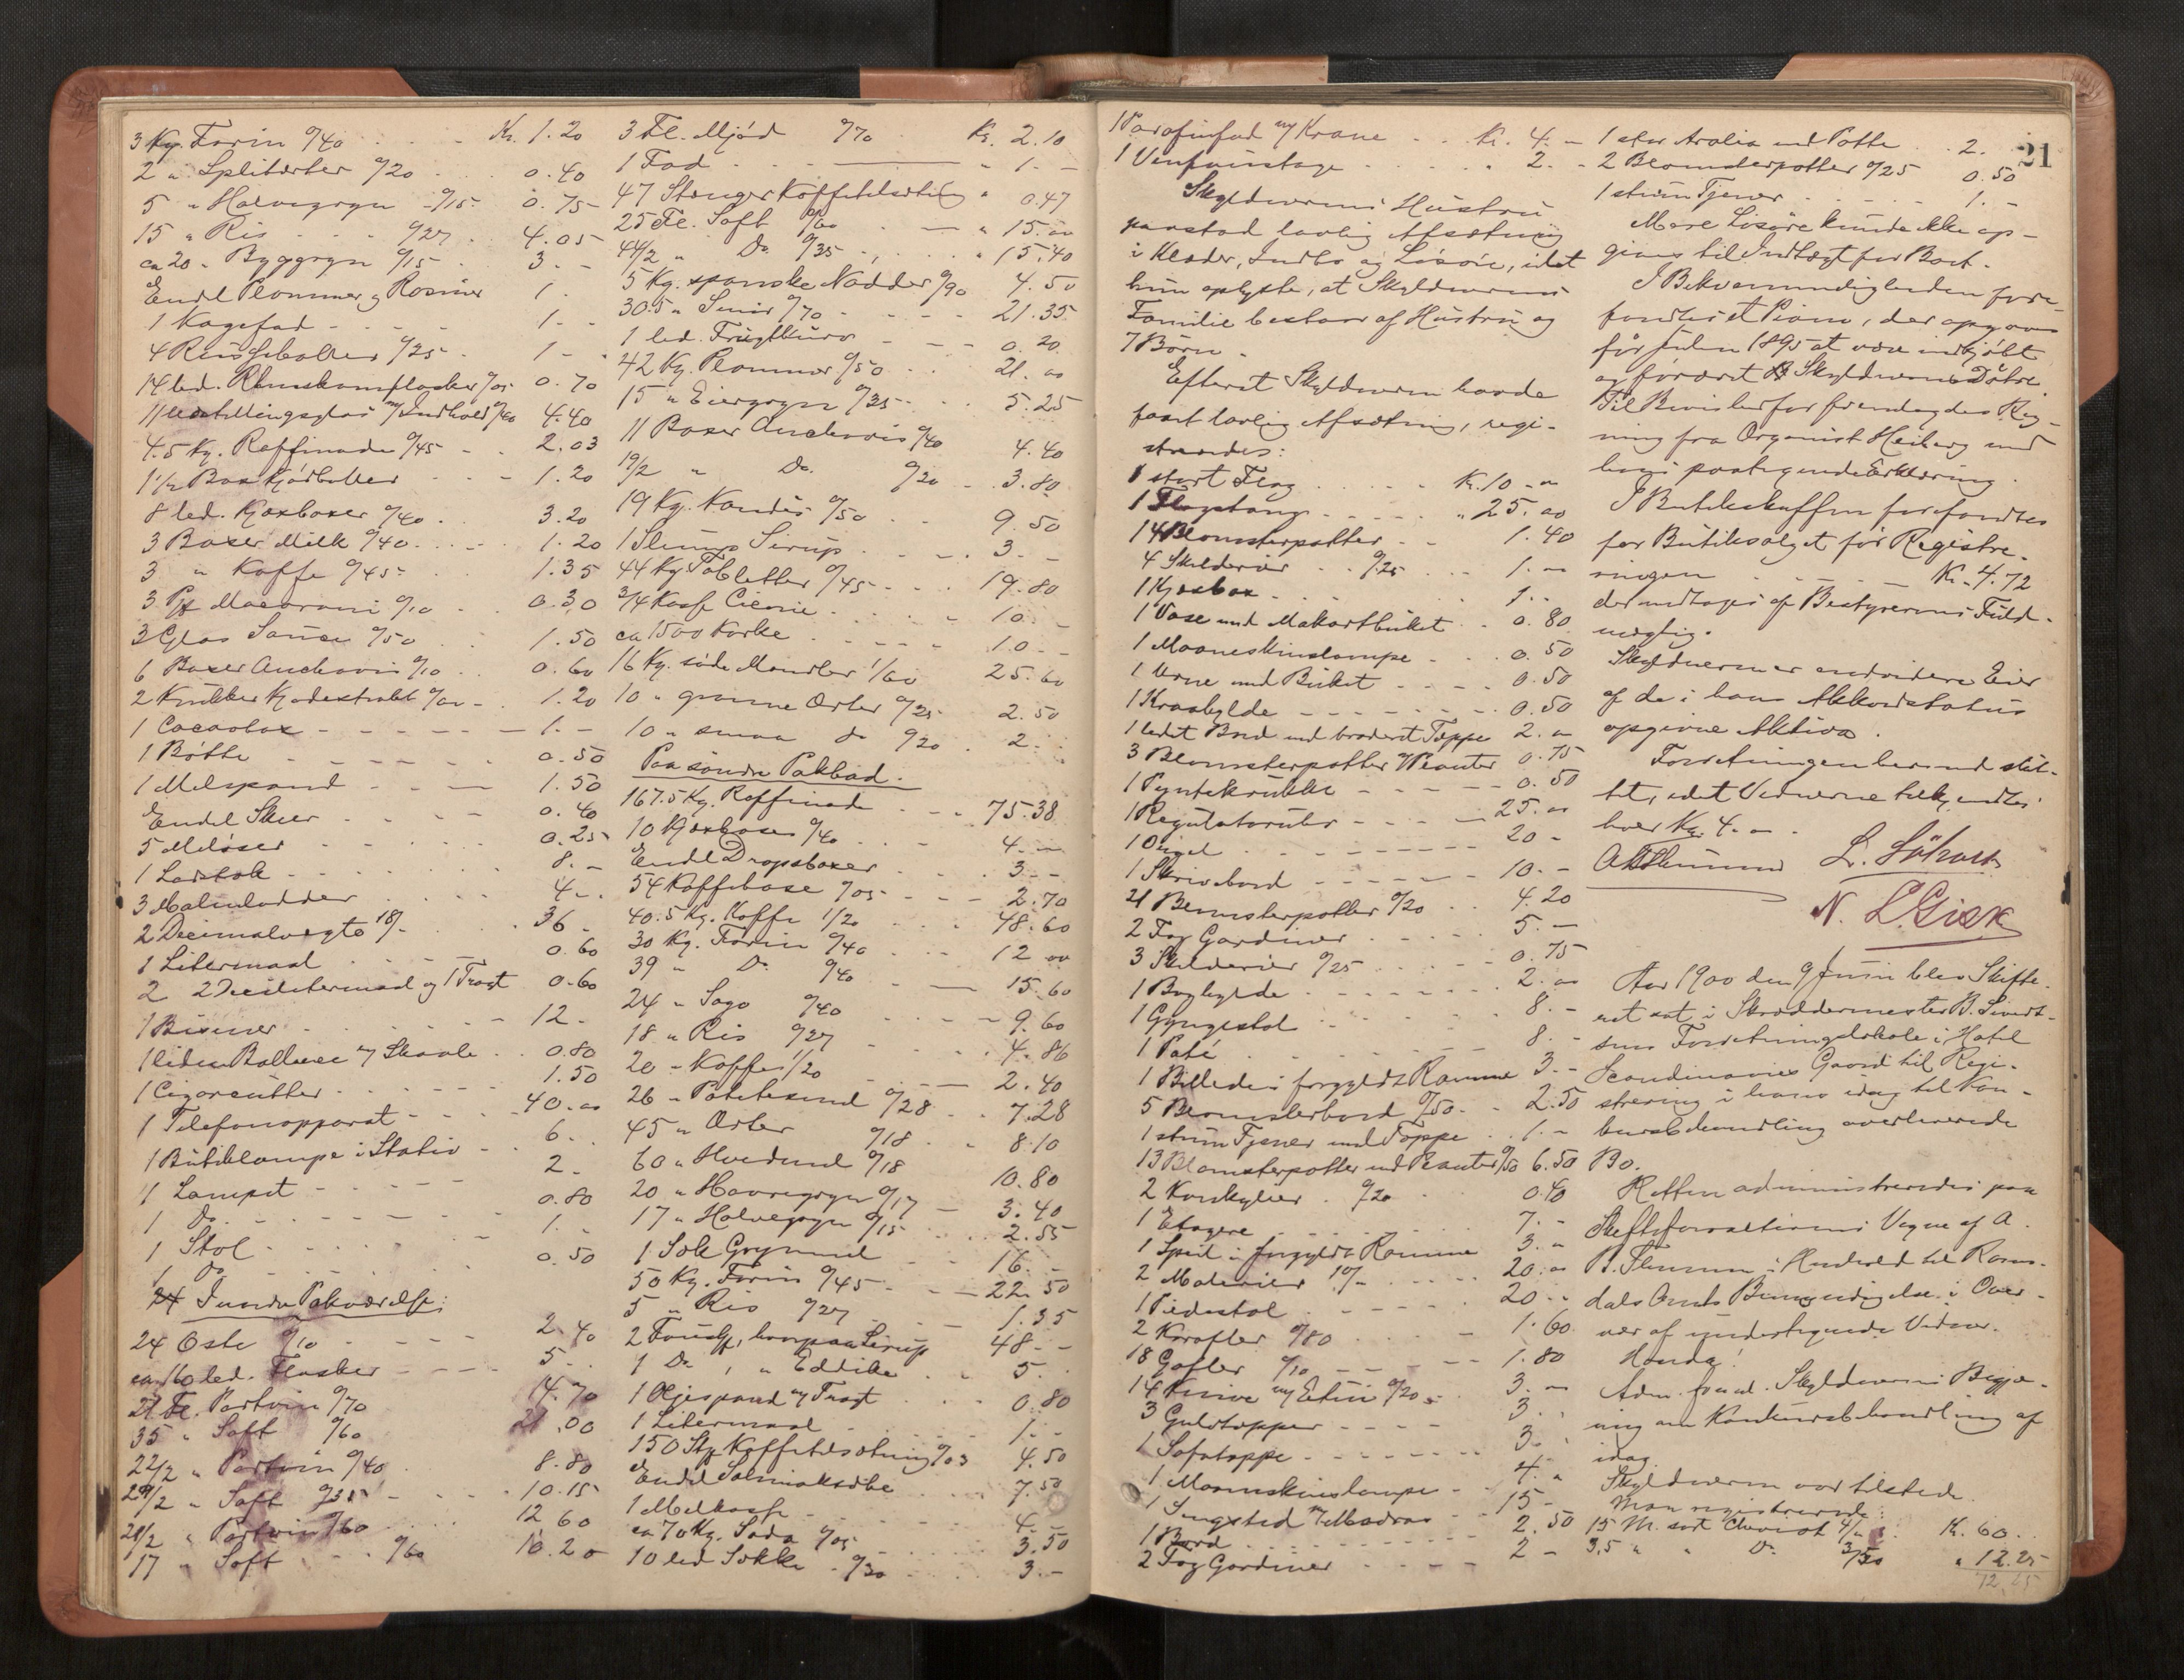 3 Kg. Farin 0/40 Kr. 1.20
2 " Spliterter 0/20 0.40
5 " Halvegryn 0/15 0.75
15 " Ris 0/27 4.05
ca 20 " Byggryn 0/15 3.-
Endl Plommer og Rosiner 1.
1 Kagefad 1.-
4 0/25 1.-
14 led. 0/05 0.70
11 Udstillingsglas m/ Indhold 0/40 4.40
4.5 Kg. Raffinade 0/45 2.03
1 1/2 Box Kjødboller 1.20
8 led. Kjaxboxer 0/40 3.20
3 Boxer Milk 0/40 1.20
3 " Kaffe 0/45 1.35
3 Pk Macaroni 0/10 0.30
3 Glas Sauce 0/50 1.50
6 Boxer Anchovis 0/10 0.60
2 Krukker Kjødextrakt 0/60 1.20
1 Cacaobox 1.-
1 Bøtte 0.50
1 Melspand 1.50
Endel Skeer 0.40
5 Meløser 0.25
1 8.-
3 4.-
2 Decimalvegte 18/- 36.
1 Litermaal 0.60
2 2 Decilitermaal og 1 Tragt 0.60
1 Bismer 12.-
1 liden Ballie m/ Skaale 0.80
1 Cigarcutter 1.50
1 Telefonapparat 40.00
1 Butiklampe i Stativ 6.-
1 Lampet 2.-
1 Do 0.80
1 Stol 1.-
1 Do 0.50
I søndre Pakværelse:
24 Oste 0/10 2.40
led. Flasker 5.-
21 Fl. Portvin 0/70 14.70
35 " Saft 0/60 21.00
22/2 " Portvin 0/40 8.80
29/2 " Saft 0/35 10.15
21/2 " Portvin 0/60 12.60
17 " Saft 0/60 10.20
3 Fl. Mjød 0/70 Kr. 2.10
1 Fad " 1.-
47 Stænger Kaffetilsetning " 0.47
25 Fl. Saft 0/60 " 15.00
44/2 " Do 0/35 " 15.40
5 Kg. spanske Nødder 0/90 4.50
30.5 " Smør 0/70 21.35
1 led. Frugtkurv 0.20
42 Kg. Plommer 0/50 21.00
15 " Eiergryn 0/35 5.25
11 Boxer Anchovis 0/40 4.40
19/2 " Do. 0/20 3.80
19 Kg. Kandis 0/50 9.50
1 Slump Sirup 3.-
44 Kg. Tabletter 0/45 19.80
3/4 Kasse Cicorie 10.-
ca 1500 Korke 10.-
16 Kg. søde Mandler 1/60 25.60
10 " grønne Erter 0/25 2.50
10 " smaa do 0/20 2.-
Paa søndre Pakbod.
167.5 Kg. Raffinade 75.38
10 Kjaxboxer 0/40 4.-
Endel Dropsboxer 3.-
54 Kaffeboxe 0/05 2.70
40.5 Kg. Kaffe 1/20 48.60
30 Kg. Farin 0/40 12.00
39 " Do 0/40 15.60
24 " Sago 0/40 9.60
18 " Ris 0/27 4.86
20 " Kaffe 1/20 2.40
26 " Potetesmel 0/28 7.28
45 " Erter 0/18 8.10
60 " Hvedmel 0/18 10.80
20 " Havregryn 0/17 3.40
17 " Halvegryn 0/15 2.55
1 Sæk Grynmel 16.-
50 Kg. Farin 0/45 22.50
5 " Ris 0/27 1.35
2 Fousk, hvorpaa Sirup 48.-
1 Do , " Eddike 5.-
1 Oljespand m/ Tragt 0.80
1 Litermaal 1.-
150 Stg. Kaffetilsetning 0/03 4.50
Endel Salmiaksæbe 7.50
1 Melkasse 4.-
ca 70 Kg. Soda 0/05 3.50
10 led Sække 0/30 3.-
1 Parafinfad m/ Krane Kr. 4.-
1 Vinduestage " 2.-
Skyldnerens Hustru
paastod lovlig Afsætning
i Klæder, Indbo og Løsøre, idet
hun oplyste, at Skyldnerens
Familie bestaar af Hustru og
7 Børn.
Efterat Skyldneren havde
faaet lovlig Afsætning, regi-
streredes:
1 stort Flag Kr. 10.-
1 Flagstang " 25.00
14 Blomsterpotter 1.40
4 Skilderier 0/25 1.-
1 Kjaxbox 1.-
1 Vase med Makartbuket 0.80
1 Maaneskinslampe 0.50
1 Urne med Buket 0.50
1 Kroghylde 0.50
1 ledet Bord med broderet Tæppe 2.-
3 Blomsterpotter m/ Planter 0.75
1 Pyntekrukke 0.50
1 Regulatoruhr 25.00
1 Orgel 20.-
1 Skrivebord 10.-
21 Blomsterpotter 0/20 4.20
2 Fag Gardiner 5.-
3 Skilderier 0/25 0.75
1 Boghylde 2.00
1 Gyngestol 8.-
1 Puté 8.-
1 Billede i forgyldt Ramme 3.-
5 Blomsterbord 0/50 2.50
1 stum Tjener med Tæppe 1.-
13 Blomsterpotter med Planter 0/50 6.50
2 Konkylier 0/20 0.40
1 Etagere 7.-
1 Speil i forgyldt Ramme 3.-
2 Malerier 10/- 20.00
1 Piedestal 20.-
2 Karafler 0/80 1.60
18 Gafler 0/10 1.80
14 Knive m/ Etui 0/20 3.-
3 Gulvtæpper 3.-
1 Sofatæppe 3.-
1 Maaneskinslampe 4.-
1 Sengsted m/ Madras 15.-
1 Bord 2.50
2 Fag Gardiner 2.-
21
1 stor Aralia med Potte 2.
2 Blomsterpotter 0/25 0.50
1 stum Tjener 1.-
Mere Løsøre kunde ikke op-
gives til Indtægt for Boet.
I Bekvemmeligheden fore-
fandtes et Piano, der opgaves
før Julen 1895 at være indkjøbt
og foræret Skyldnerens Døtre.
Til Bevis herfor fremlagdes Reg-
ning fra Organist Heiberg med
hans paategnede Erklæring.
I Butikskuffen forefandtes
for Butiksalget før Registre-
ringen Kr. 4.72
der modtoges af Bestyrerens Fuld-
mægtig.
Skyldneren er endvidere Eier
af de i hans Akkordstatus
opgivne Aktiva.
Forretningen hermed slut-
tet, idet Vidnerne tilkjendtes
hver Kr. 4.-
L. Søhoel
N. L. Gisk
Aar 1900 den 9 Juni blev Skifte-
ret sat i Skræddermester B. Sivert-
sens Forretningslokale i Hotel
Scandinavies Gaard til Regi-
strering i hans idag til Kon-
kursbehandling overleverede
Bo.
Retten administreredes paa
Skifteforvalterens Vegne af A.
P. Flemmen i Henhold til Roms-
dals Amts Bemyndigelse i Over-
vær af undertegnede Vidner.
Adm. freml. Skyldnerens Begjæ-
ring om Konkursbehandling af
idag.
Skyldneren var tilstede.
Man registrerede:
15 M. sort Cheviot 4/- Kr. 60.-
3.5 " " Do 3/50 " 12.25
72.25